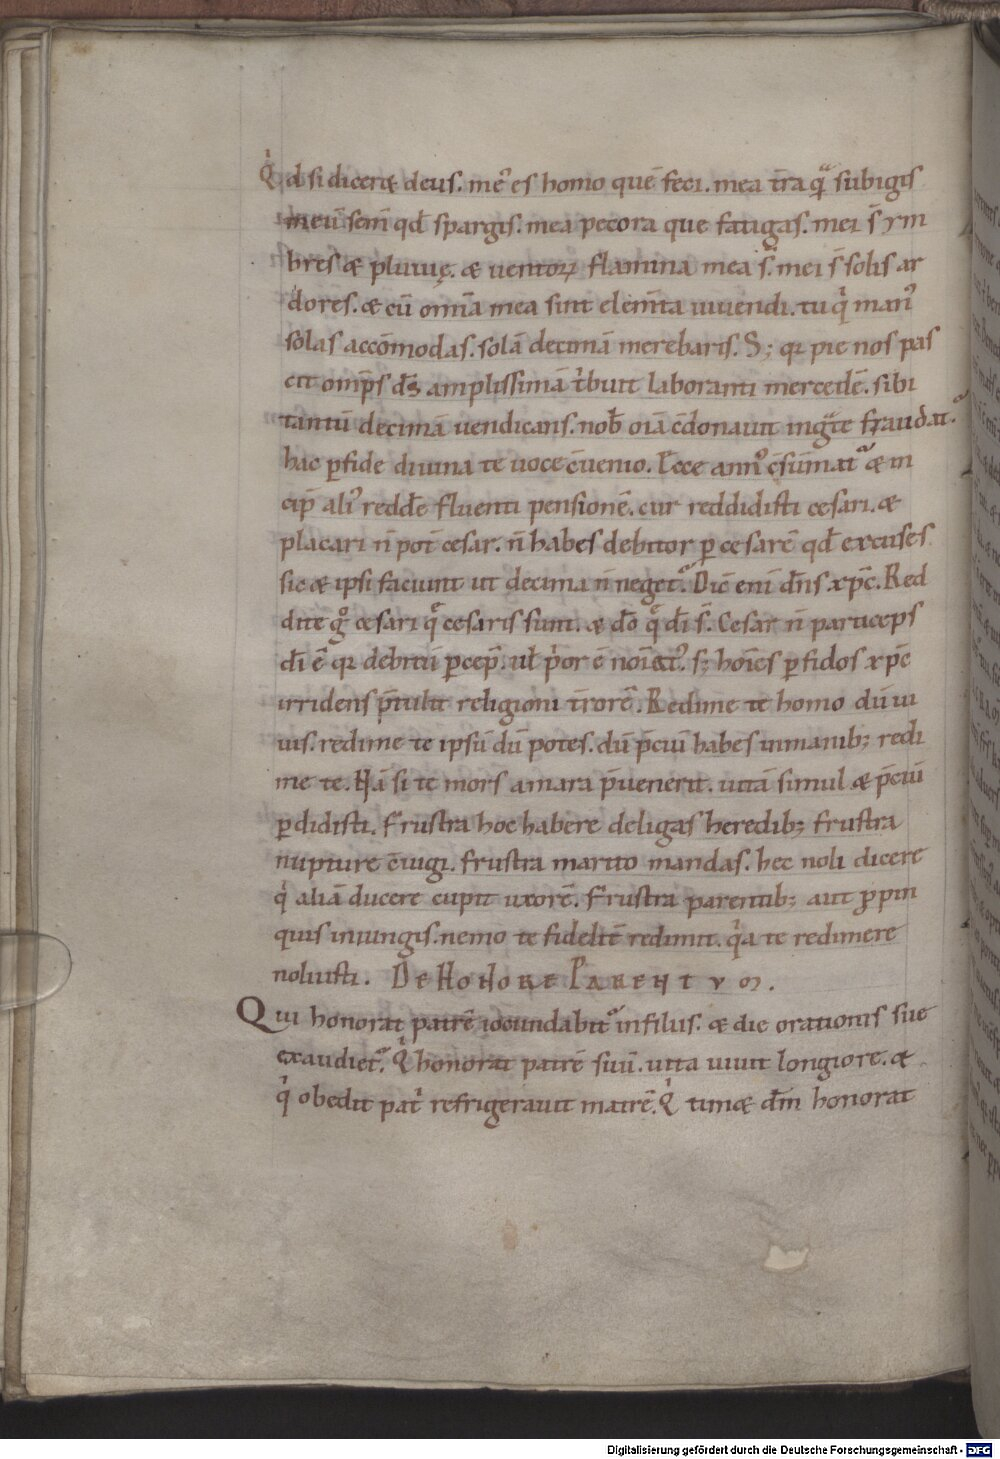 Qd si diceret deus. me͛ es homo quē feci. mea t̄ra qͣ subigis
meū sem̄ qd̄ spargis. mea pecora que fatigas. mei s̄ ym
bres & pluuię. & uentoꝝ flamina mea s̄. mei s̄ solis ar
dores. & cū om̄ia mea sint elem̄ta uiuendi. tu qͥ man᾽
solas accōmodas. solā decimā merebaris. S; qꝛ pie nos pas
cit omp̄s d̄s amplissimā tͥbuit laboranti mercedē. sibi
tantū decimā uendicans. nob̄ oīa c̄donauit ingͣte fraudat᷑
hac ꝑfide diuina te uoce c̄uenio. Ecce ann᾽ c̄sūmat᷑ & in
cip̄ ali᾽ redde fluenti pensionē. cur reddidisti cesari. &
placari n̄ pot̄ cesar. n̄ habes debitor ꝑ cesarē qd̄ excuses
sic & ipsi faciunt ut decima n̄ neget᷑. Dic̄ eni d̄ns xp̄c. Red
dite gͦ cesari q̄ cesaris sunt. & dō q̄ dī s̄. Cesar n̄ particeps
dī ē qꝛ debitū ꝑcep̄. ul̄ pͥor ē noīet᷑. s; hoīes ꝑfidos xp̄c
irridens p̄tulit religioni t̄rorē. Redime te homo dū ui
uis. redime te ipsū dū potes. dū p̄ciū habes in manib; redi
me te. Nā si te mors amara p̄uenerit. uitā simul & p̄ciū
ꝑdidisti. Frustra hoc habere deligas heredib; frustra
nupture c̄iugi. frustra marito mandas. hec noli dicere
qͥ aliā ducere cupit uxorē. Frustra parentib; aut ꝓpin
quis iniungis. nemo te fidelit̄ redimit. qͥa te redimere
noluisti. De Honore Parentum.
Qui honorat patrē iocundabit᷑ in filiis. & die orationis sue
exaudiet᷑. Qͥ honorat patrē suū. uita uiuit longiore. &
qͥ obedit patͥ refrigerauit matrē. Qͥ timæ dm̄ honorat
Digitalisierung gefördert durch die Deutsche Forschungsgemeinschaft - DFG